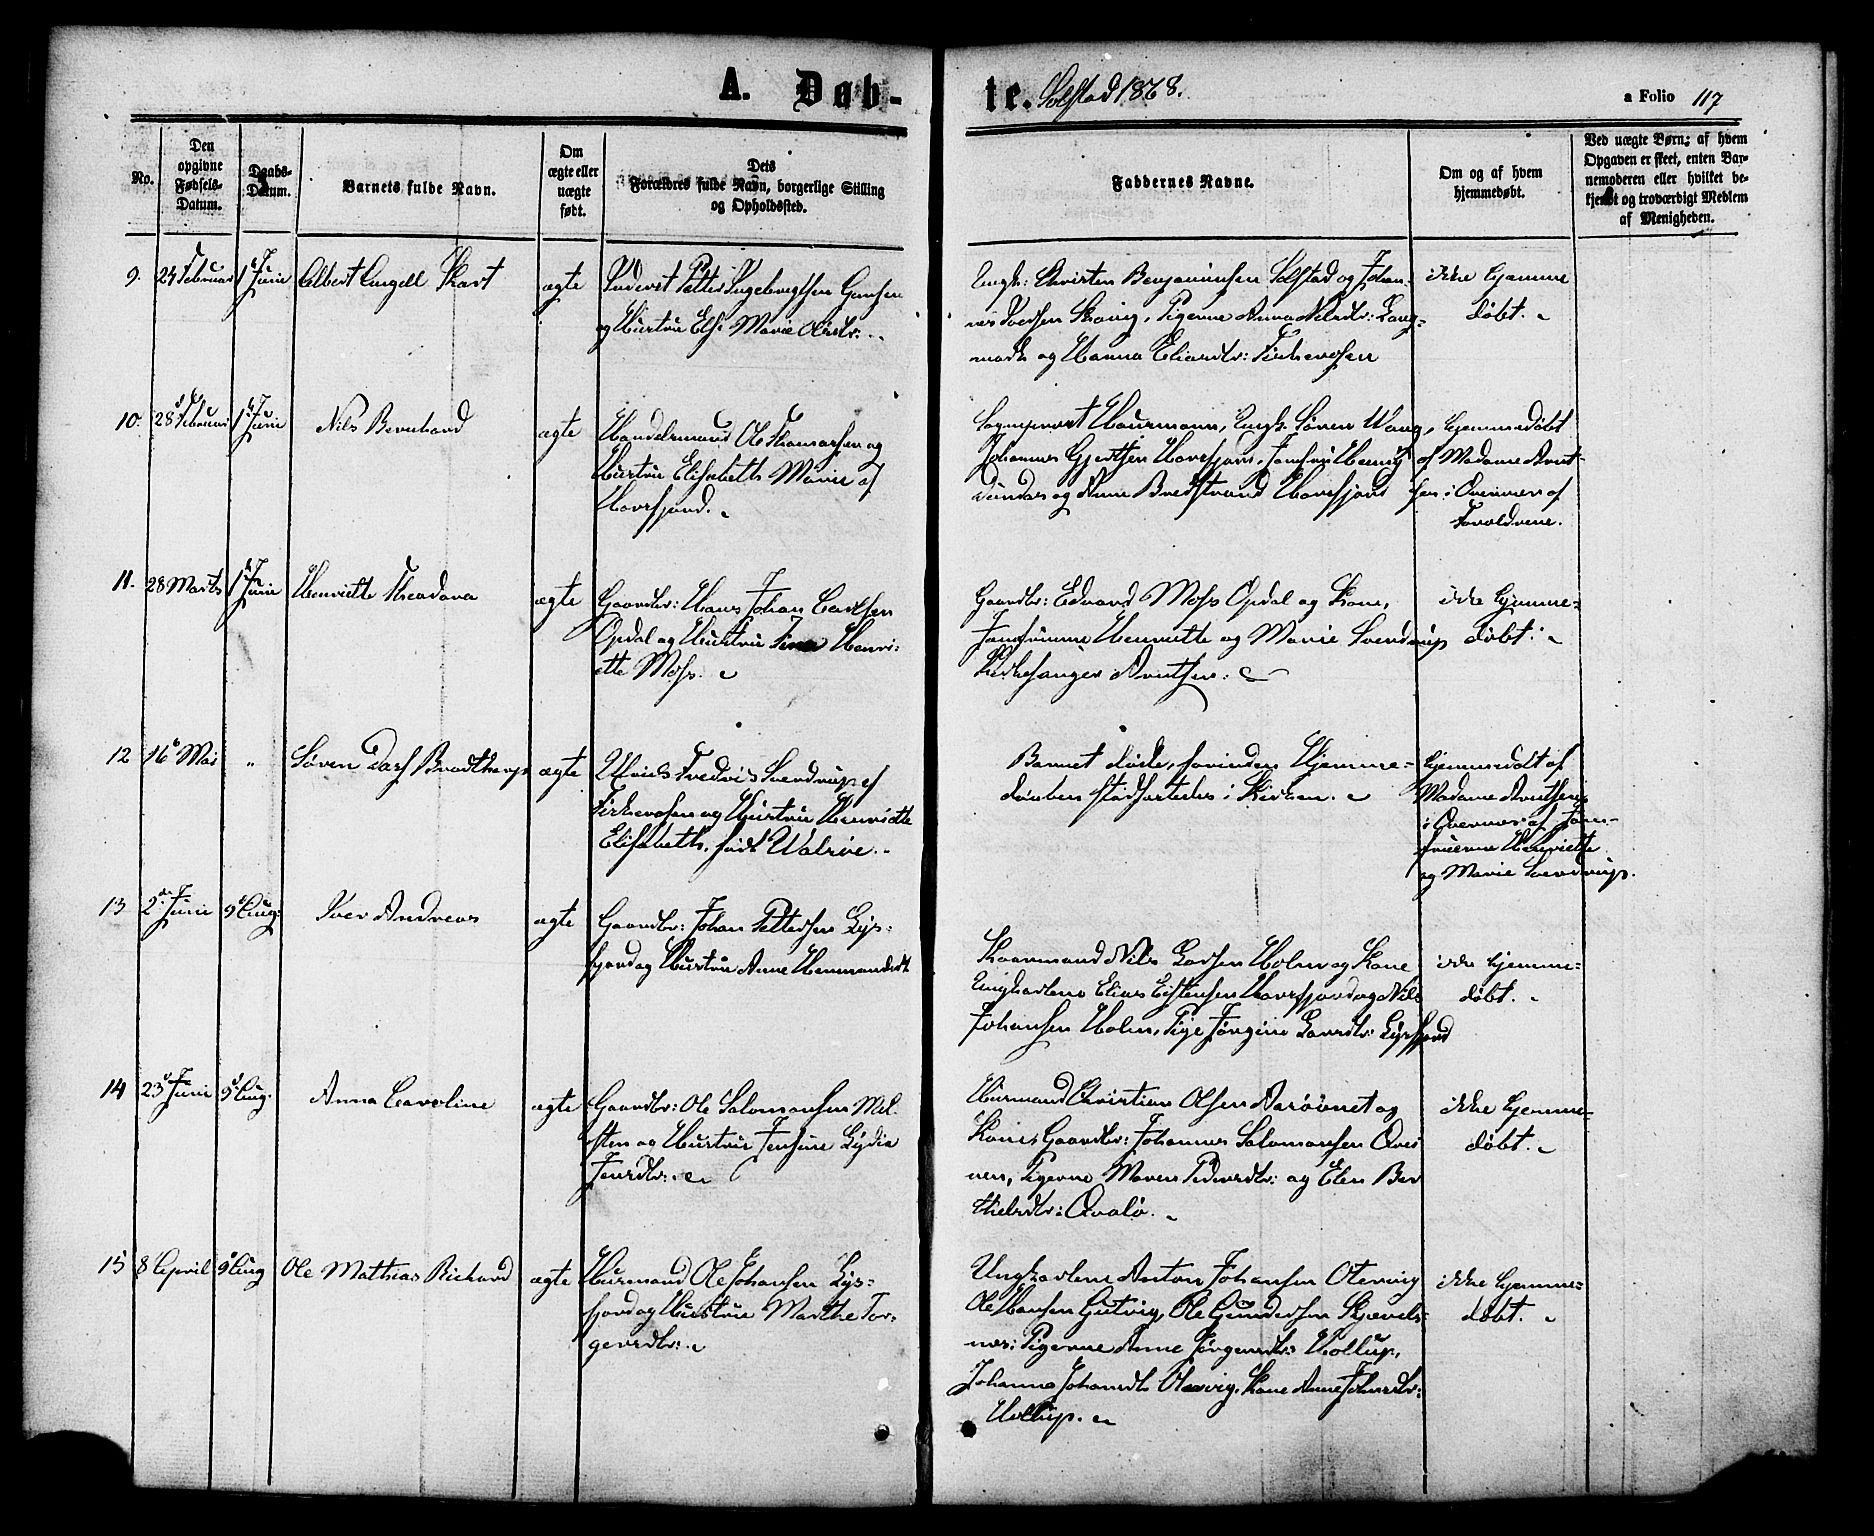 A. Døb-
te. Solstad 1868.
a Folio 117
No.
Den
opgivne
Fødsels-
Datum.
Daabs-
Datum.
Barnets fulde Navn.
Om
ægte eller
uægte
født.
Dets
Forældres fulde Navn, borgerlige Stilling
og Opholdssted.
Faddernes Navne.
Om og af hvem
hjemmedøbt.
Ved uægte Børn: af hvem
Opgaven er skeet, enten Bar-
nemoderen eller hvilket be-
kjendt og troværdigt Medlem
af Menigheden.
9. 24 Februar 1 Juni Albert Angell ægte
Petter Ingebrigtsen
og Hustru Else Marie Olsdtr:
Ungk: Christen Benjaminsen Solstad og Johan-
nes Pigerne Anna Nilsdtr: Lang-
og Hanna Eliasdtr: Terchevosen
ikke hjemme
døbt.
10. 28 Februar 1 Juni Nils Bernhard ægte
Handelsmand Ole Thomassen og
Hustru Elisabeth Marie af
Horsfjord.
Sognepræst Haurmann, Ungk. Søren Wang,
Johannes Gjertsen Horsfjord, Jomfru
og Anne Bredstrand Horsfjord
hjemmedøbt
af Madame Arnt-
sen i Overvær af
Forældrene.
11. 28 Marts 1 Juni Henriette Theodora ægte
Gaardbr: Hans Johan Carlsen
Opdal og Hustru Henri-
ette Moss.
Gaardbr: Edvard Moss Opdal og Kone,
Jomfruerne Henriette og Marie Sverdrup
Kirkesanger Arntsen.
ikke hjemme-
døbt.
12 16 Mai " Søren ægte
Fredrik Sverdrup af
Terchevosen og Hustru Henriette
Elisabeth, født
Barnet døde, forinden Hjemme-
daaben stadfæstedes i Kirken.
hjemmedøbt af
Madame Arntsen
i Overvær af Jom-
fruerne Henriette
og Marie Sverdrup.
13 2 Juni 9 Aug: Iver Andreas ægte
Gaardbr: Johan Pettersen Lys-
fjord og Hustru Anne Hermansdtr
Kaarmand Nils Larsen Holm og Kone
Ungkarlene Elias Eistensen Horsfjord og Nils
Johansen Holm, Pige Jørgine Larsdtr: Lysfjord
ikke hjemme-
døbt.
14 23 Juni 9 Aug. Anna Caroline ægte
Gaardbr: Ole Salomonsen Mel-
sten og Hustru Jensine Lydia
Jensdtr:.
Huusmand Christian Olsen og
Kone, Gaardbr: Johannes Salomonsen
Pigerne Maren Pedersdtr: og Elen Ber-
thelsdtr:
ikke hjemme-
døbt.
15 8 April 9 Aug Ole Mathias Richard ægte
Huusmand Ole Johansen Lys-
fjord og Hustru Marthe Tor-
gersdtr:.
Ungkarlene Anton Johansen Otervig
Ole Hansen Gutvig, Ole Gundersen Skjævels-
næs: Pigerne Anne Jørgensdtr: Hollup,
Johanna Johansdtr. Kone Anne Johnsdtr:
Hollup.
ikke hjemme-
døbt.